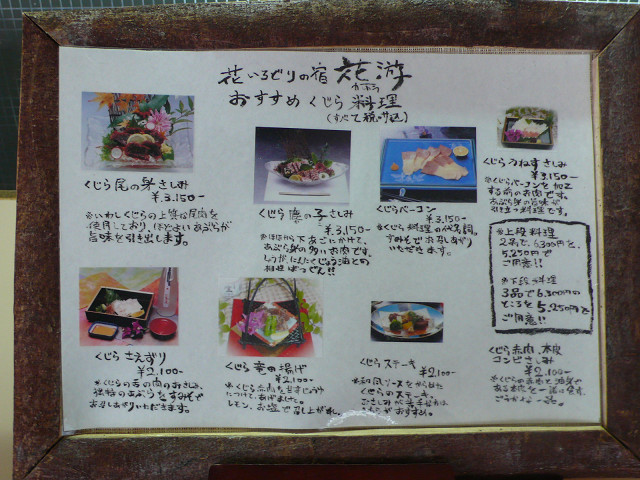 花いろどりの宿 花游
かゆう
おすすめくじら料理
(すべて税・サ込)
くじら尾の身さしみ
¥3.150-
※いわしくじらの上質な尾肉を
使用しており、ほどよいあぶらが
旨味を引き出します。
くじら鹿の子さしみ
¥3.150-
※ほほから下あごにかけて、
あぶら身の多いお肉です。
しょうが、にんにくじょうゆとの
相性ばつぐん!!
くじらベーコン
¥3.150-
※くじら料理の代名詞。
すみそでお召しあがり
いただきます。
くじらうねすさしみ
¥3.150-
※くじらベーコンを加工
する前のお肉です。
あぶら身の旨味が
引き立つ料理です。
※上段料理
2品で、6300円を、
5.250円で
ご用意!!
※下段料理
3品で6.300円の
ところを5.250円を
ご用意!!
くじらさえずり
¥2.100-
※くじらの舌の肉のおさしみ。
独特のあぶらをすみそで
お召しあがりいただきます。
くじら竜田揚げ
¥2.100-
※くじら赤肉を生姜じょうゆ
につけて、あげました。
レモン、お塩で召し上がれ。
くじらステーキ
¥2.100-
※和風ソースをからめた
くじらのステーキ。
おさしみが苦手な方は
こちらがおすすめ。
くじら赤肉、本皮
コンビさしみ
¥2.100-
※くじらの赤肉と油身で
ある本皮を一緒に味う、
ごうかな一品。